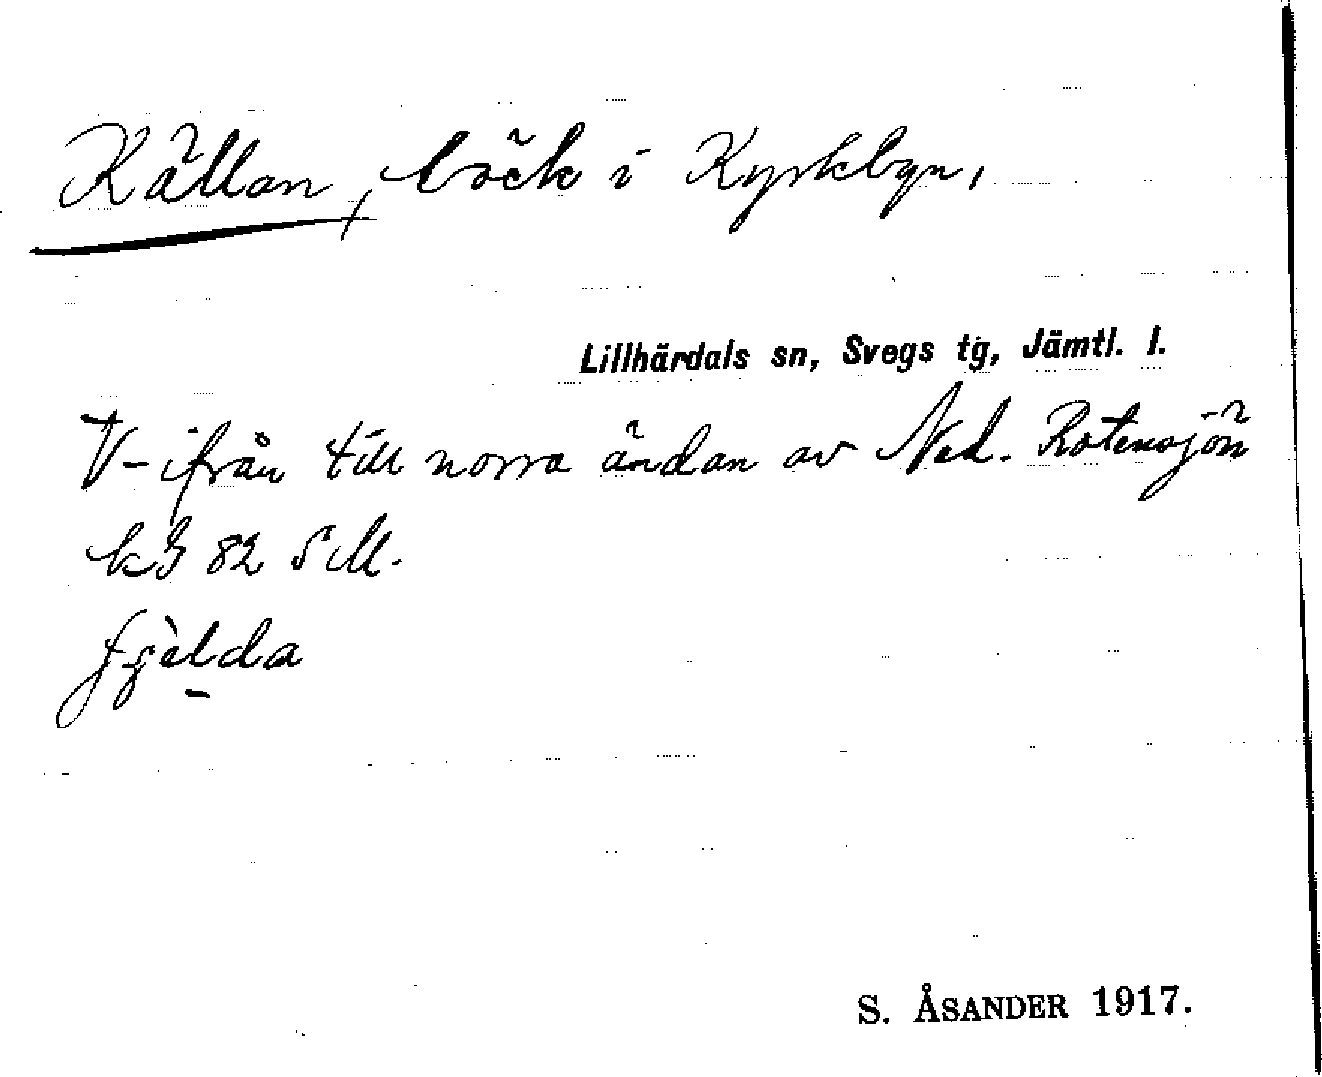 Källan, bäck i Kyrkbyn,
Lillhärdals sn, Svegs tg, Jämtl. l.
V-ifrån till norra ändan av Ned. Rotensjön
kg 82 SM.
S. ÅSANDER 1917.